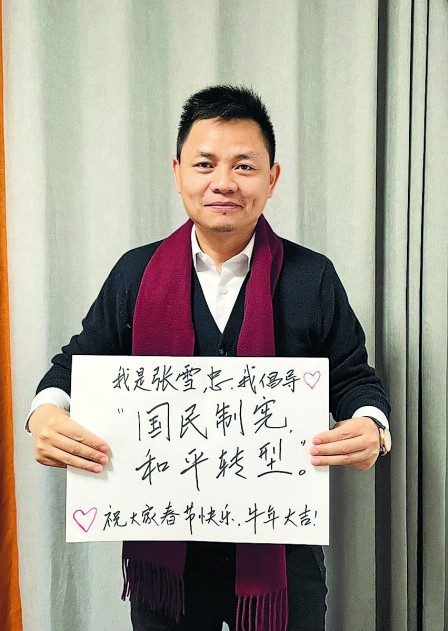 我是张雪忠.我倡导
“国民制宪,
和平转型”。
祝大家春节快乐,牛年大吉!